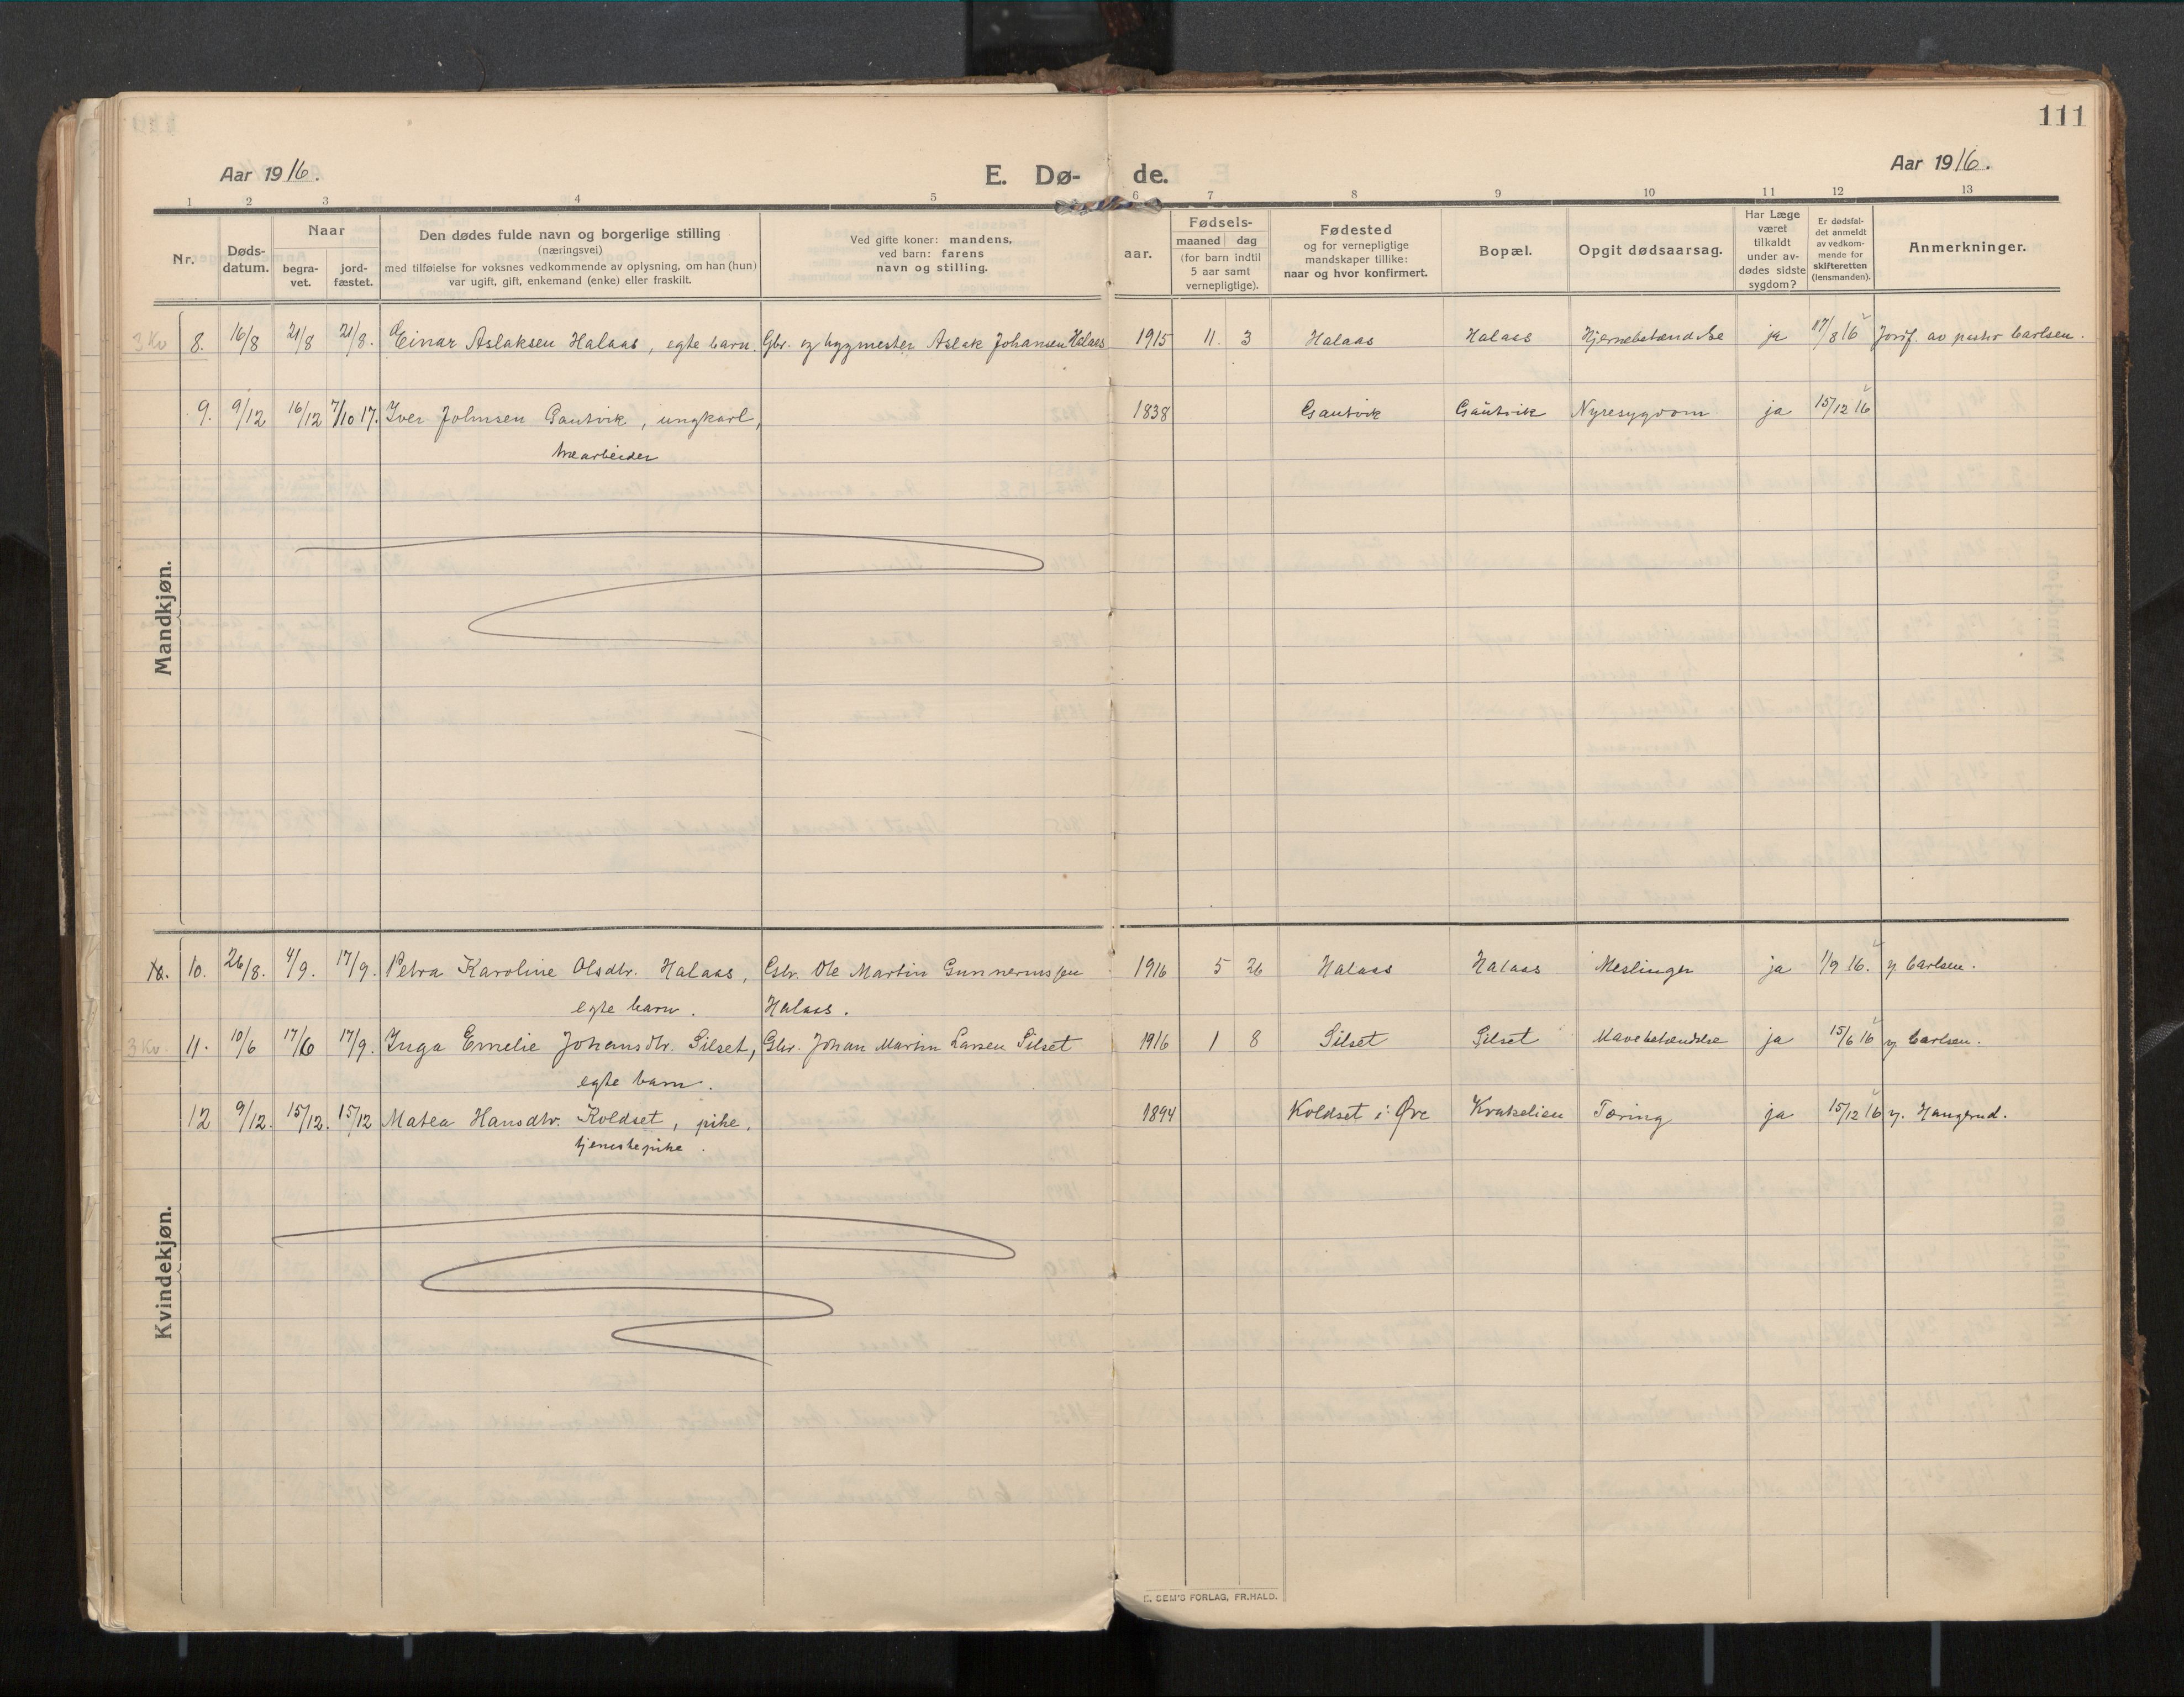 111
Aar 1916.
E. Dø- de.
Aar 1916.
1 2 3 4 5 6 7 8 9 10 11 12 13
Nr.
Døds-
datum.
Naar
begra-
vet.
jord-
fæstet.
Den dødes fulde navn og borgerlige stilling
(næringsvei)
med tilføielse for voksnes vedkommende av oplysning, om han (hun)
var ugift, gift, enkemand (enke) eller fraskilt.
Ved gifte koner: mandens,
ved barn: farens
navn og stilling.
aar.
Fødsels-
maaned dag
(for barn indtil
5 aar samt
vernepligtige).
Fødested
og for vernepligtige
mandskaper tillike:
naar og hvor konfirmert.
Bopæl.
Opgit dødsaarsag.
Har Læge
været
tilkaldt
under av-
dødes sidste
sygdom?
Er dødsfal-
det anmeldt
av vedkom-
mende for
skifteretten
(lensmanden).
Anmerkninger.
Mandkjøn.
3 Kv 8. 16/8 21/8 21/8. Einar Aslaksen Halaas, egte barn. Gbr. og bygmester Aslak Johansen Halaas 1915 11. 3 Halaas Halaas Hjernebetændelse ja 17/8 16 Jordf. av pastor Carlsen.
9. 9/12 16/12 7/10 17. Iver Johnsen Gautvik, ungkarl, 1838 Gautvik Gautvik Nyresygdom ja 15/12 16
træarbeider
Kvindekjøn.
10. 26/8. 4/9. 17/9. Petra Karoline Olsdtr. Halaas, Gbr. Ole Martin Gunnerussen 1916 5 26 Halaas Halaas Meslinger ja 1/9 16. y Carlsen.
egte barn. Halaas.
3 Kv. 11. 10/6 17/6 17/9. Inga Emelie Johansdtr. Silset, Gbr. Johan Martin Larsen Silset 1916 1 8 Silset Silset Mavebetændelse ja 15/6 16 y Carlsen.
egte barn.
12 9/12. 15/12. 15/12 Matea Hansdtr. Koldset, pike, 1894 Koldset i Øre Krakelien Tæring ja 15/12 16 y. Haugerud.
tjenestepike.
E. SEM'S FORLAG, FR.HALD.